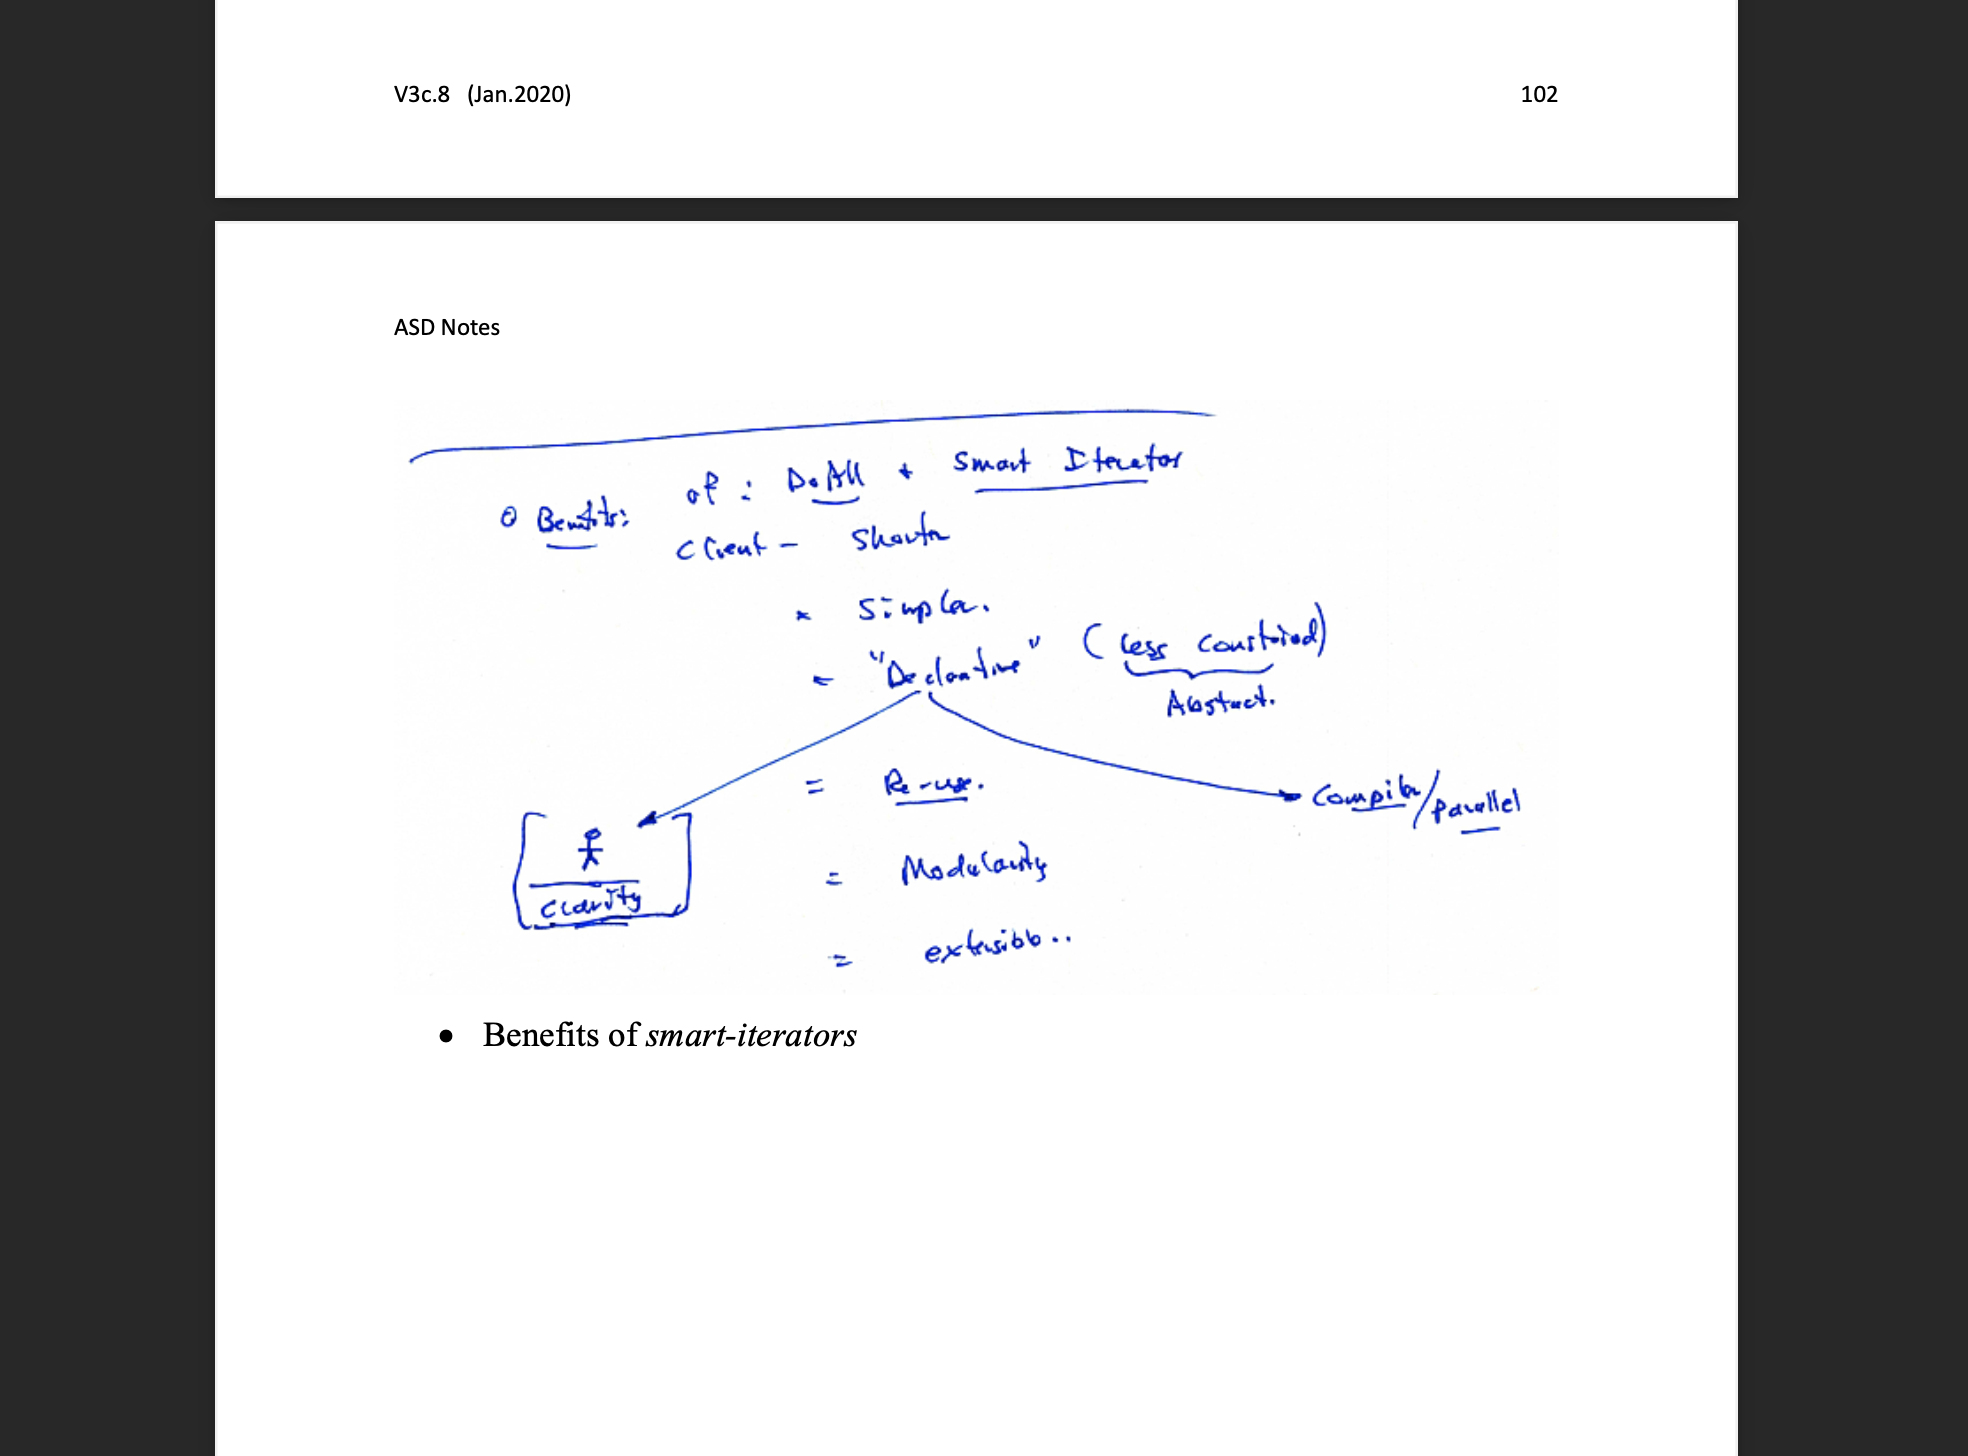 V3c.8 (Jan.2020) 102
ASD Notes
of : DoAll + Smart Iterator
o Benefits:
Client - Shorter
" Simpler.
= "Declarative" (less constrained)
Abstract.
= Re-use.
Compiler/parallel
= Modularity
Clarity
= extensible..
• Benefits of smart-iterators